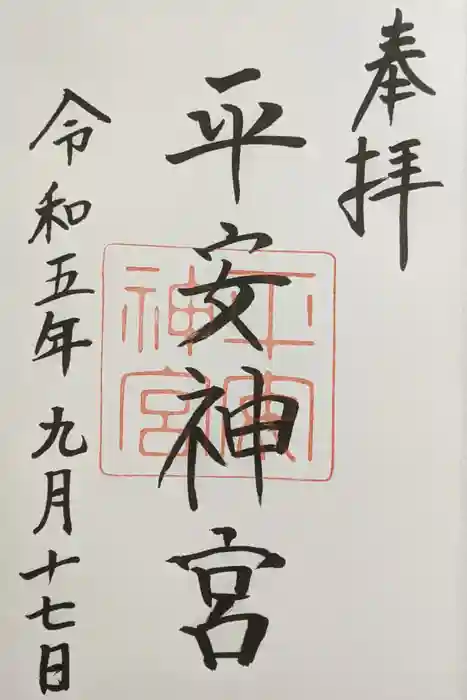 奉拝
平安神宮
平安神宮
令和五年九月十七日